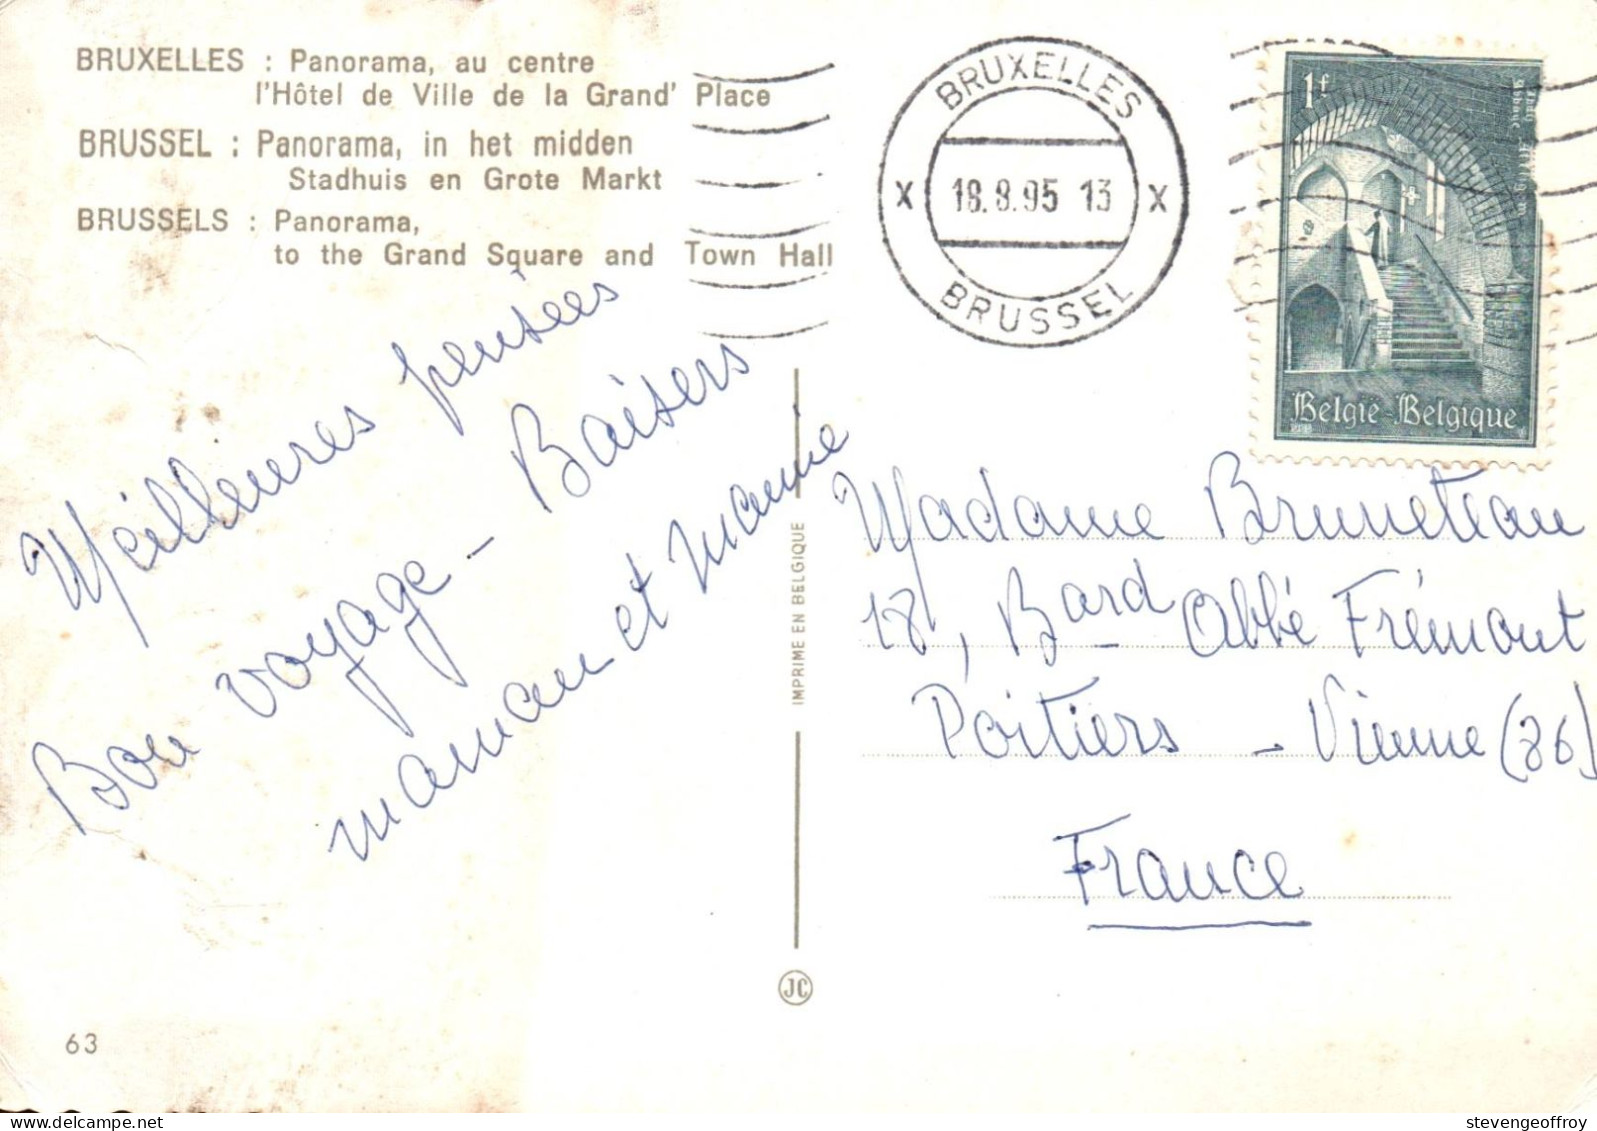 BRUXELLES : Panorama, au centre
l'Hôtel de Ville de la Grand' Place
BRUSSEL : Panorama, in het midden
Stadhuis en Grote Markt
BRUSSELS : Panorama,
to the Grand Square and Town Hall
BRUXELLES
X 18.8.95 13 X
BRUSSEL
1f
België-Belgique
Meilleures pensées
Bon voyage - Baisers
maman et mamie
IMPRIME EN BELGIQUE
JC
63
Madame Bruneteau
18, Bard Abbé Frémont
Poitiers - Vienne (86)
France
stevengeoffroy